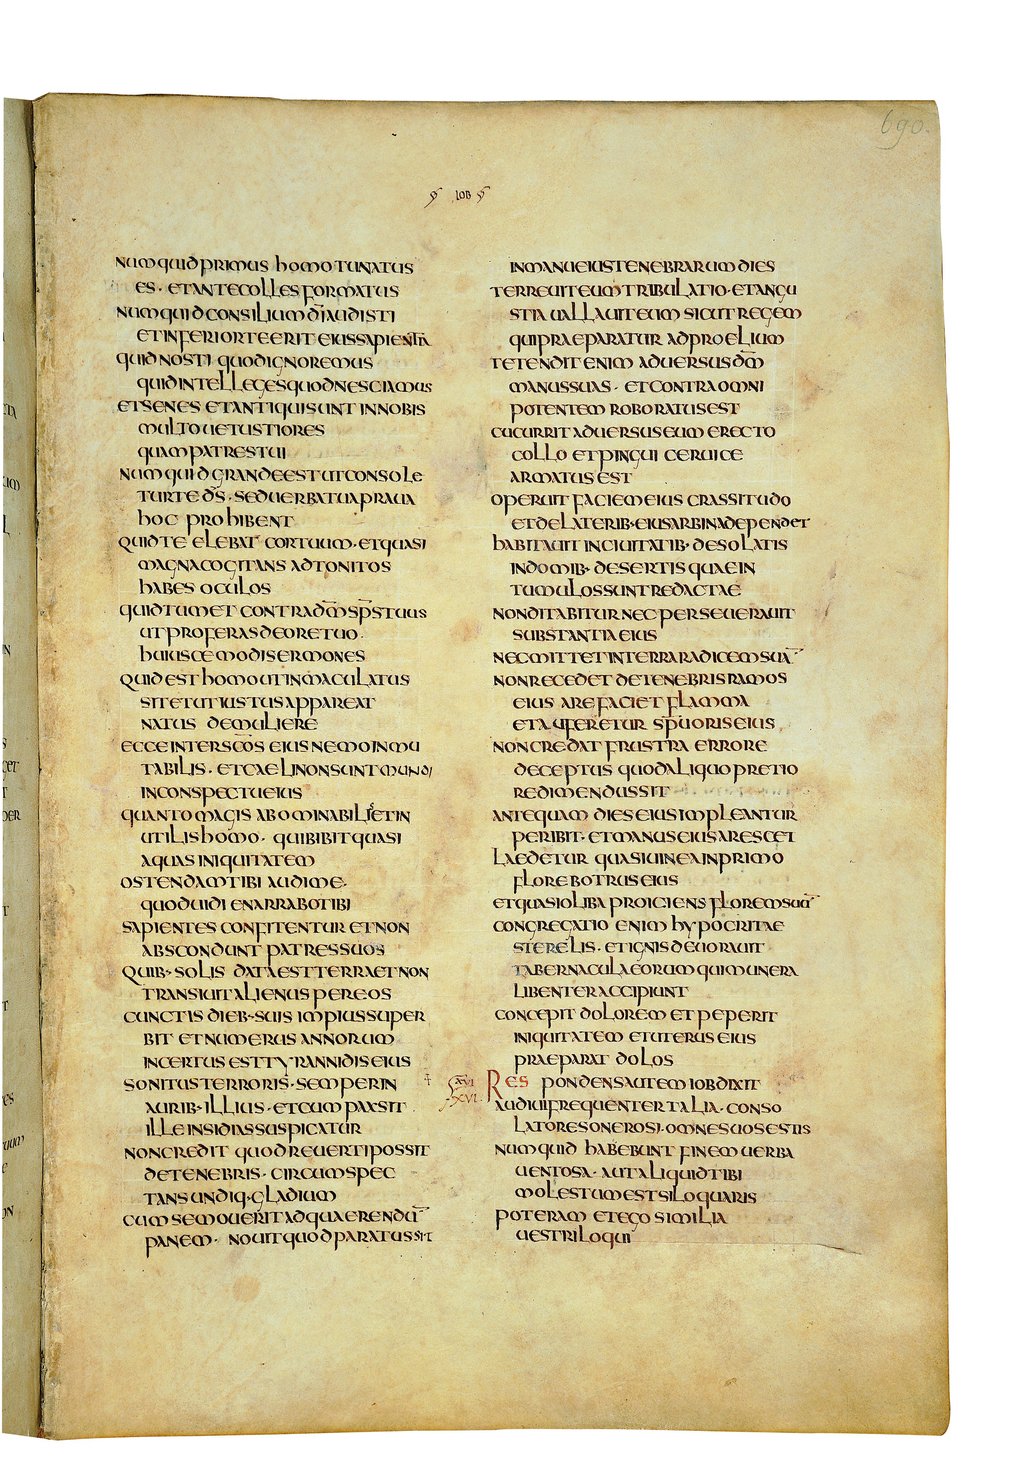 690.
IOB
NUMQUIDPRIMUS HOMOTUNATUS
ES· ETANTECOLLES FORMATUS
NUMQUIDCONSILIUMDĪAUDISTI
ETINFERIORTEERITEIUSSAPIENTIA
QUIDNOSTI QUODIGNOREMUS
QUIDINTELLEGESQUODNESCIAMUS
ETSENES ETANTIQUISUNT INNOBIS
MULTOUETUSTIORES
QUAMPATRESTUI
NUMQUIDGRANDEESTUTCONSOLE
TURTEDS̄· SEDUERBATUAPRAUA
HOC PROHIBENT
QUIDTE ELEBAT CORTUUM· ETQUASI
MAGNACOGITANS ADTONITOS
HABES OCULOS
QUIDTUMET CONTRADM̄SPS̄TUUS
UTPROFERASDEORETUO·
HUIUSCEMODISERMONES
QUIDESTHOMOUTINMACULATUS
SITETUTIUSTUSAPPAREAT
NATUS DEMULIERE
ECCEINTERSCŌS EIUSNEMOINMU
TABILIS· ETCAELINONSUNTMUNDI
INCONSPECTUEIUS
QUANTOMAGIS ABOMINABILISETIN
UTILISHOMO· QUIBIBITQUASI
AQUASINIQUITATEM
OSTENDAMTIBI AUDIME·
QUODUIDI ENARRABOTIBI
SAPIENTES CONFITENTUR ETNON
ABSCONDUNT PATRESSUOS
QUIB·SOLIS DATAESTTERRAETNON
TRANSIUITALIENUSPEREOS
CUNCTIS DIEB·SUIS IMPIUSSUPER
BIT ETNUMERUS ANNORUM
INCERTUS ESTTYRANNIDISEIUS
SONITUSTERRORIS·SEMPERIN
AURIB·ILLIUS· ETCUMPAXSIT
ILLEINSIDIASSUSPICATUR
NONCREDIT QUODREUERTIPOSSIT
DETENEBRIS· CIRCUMSPEC
TANSUNDIQ·GLADIUM
CUMSEMOUERITADQUAERENDŪ
PANEM· NOUITQUODPARATUSSIT
INMANUEIUSTENEBRARUMDIES
TERREUITEUMTRIBULATIO·ETANGU
STIAUALLAUITEUM SICUTREGEM
QUIPRAEPARATUR ADPROELIUM
TETENDITENIM ADUERSUSDM̄
MANUSSUAS· ETCONTRAOMNI
POTENTEM ROBORATUSEST
CUCURRITADUERSUSEUM ERECTO
COLLO ETPINGUI CERUICE
ARMATUSEST
OPERUITFACIEMEIUS CRASSITUDO
ETDELATERIB·EIUSARBINADEPENDET
HABITAUITINCIUITATIB·DESOLATIS
INDOMIB· DESERTIS QUAEIN
TUMULOSSUNTREDACTAE
NONDITABITURNECPERSEUERAUIT
SUBSTANTIAEIUS
NECMITTETINTERRARADICEMSUĀ
NONRECEDET DETENEBRISRAMOS
EIUS AREFACIETFLAMMA
ETAUFERETUR SPŪORISEIUS
NONCREDAT FRUSTRA ERRORE
DECEPTUS QUODALIQUOPRETIO
REDIMENDUSSIT
ANTEQUAM DIESEIUSIMPLEANTUR
PERIBIT· ETMANUSEIUSARESCET
LAEDETUR QUASIUINEAINPRIMO
FLOREBOTRUSEIUS
ETQUASIOLIBAPROICIENSFLOREMSUŪ
CONGREGATIO ENIMHYPOCRITAE
STERELIS· ETIGNISDEUORAUIT
TABERNACULAEORUMQUIMUNERA
LIBENTERACCIPIUNT
CONCEPIT DOLOREM ETPEPERIT
INIQUITATEM ETUTERUSEIUS
PRAEPARAT DOLOS
XVI RESPONDENSAUTEMIOBDIXIT
XVI. AUDIUIFREQUENTERTALIA· CONSO
LATORESONEROSI·OMNESUOSESTIS
NUMQUID HABEBUNTFINEMUERBA
UENTOSA· AUTALIQUIDTIBI
MOLESTUMESTSILOQUARIS
POTERAM ETEGOSIMILIA
UESTRILOQUI